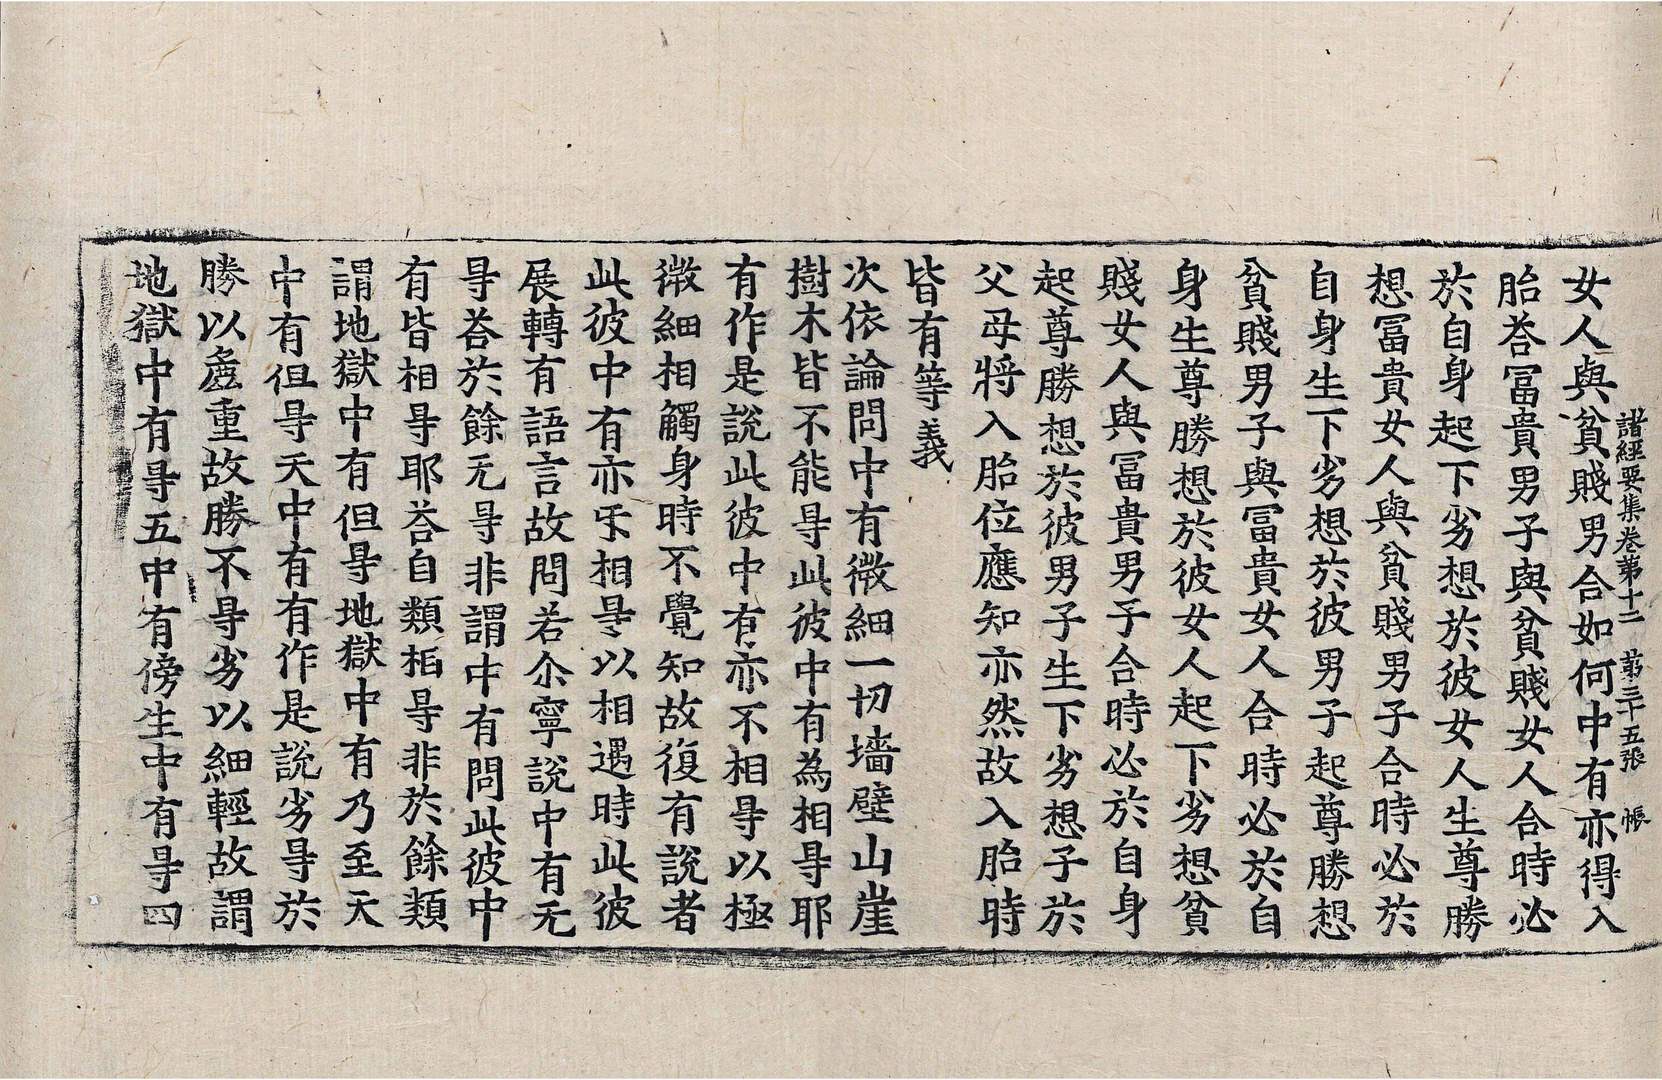 諸經要集卷第十二　第三十五張　帳
女人與貧賤男合如何中有亦得入
胎荅冨貴男子與貧賤女人合時必
於自身起下劣想於彼女人生尊勝
想冨貴女人與貧賤男子合時必於
自身生下劣想於彼男子起尊勝想
貧賤男子與冨貴女人合時必於自
身生尊勝想於彼女人起下劣想貧
賤女人與冨貴男子合時必於自身
起尊勝想於彼男子生下劣想子於
父母將入胎位應知亦然故入胎時
皆有等義
次依論問中有微細一切墻壁山崖
樹木皆不能㝵此彼中有為相㝵耶
有作是說此彼中有亦不相㝵以極
微細相觸身時不覺知故復有說者
此彼中有亦𠇾相㝵以相遇時此彼
展轉有語言故問若尒寧說中有无
㝵荅於餘无㝵非謂中有問此彼中
有皆相㝵耶荅自類相㝵非於餘類
謂地獄中有但㝵地獄中有乃至天
中有但㝵天中有有作是說劣㝵於
勝以麁重故勝不㝵劣以細輕故謂
地獄中有㝵五中有傍生中有㝵四